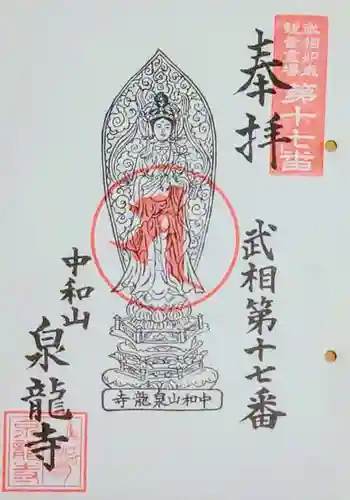 武相卯歳
観音霊場
第十七番
奉拝
武相第十七番
中和山泉龍寺
中和山
泉龍寺
泉龍寺